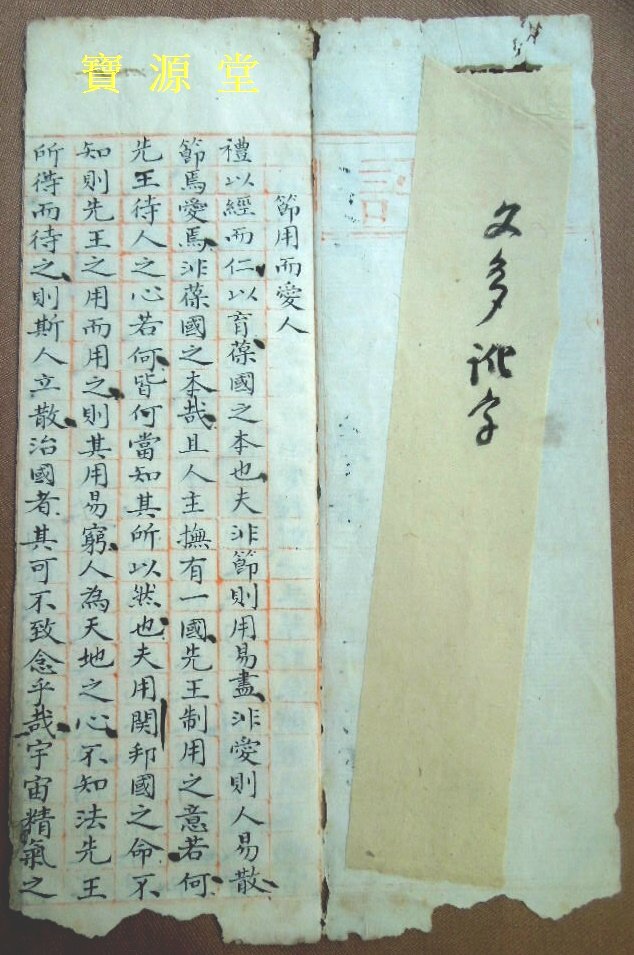 寶源堂
文多訛字
節用而愛人
禮以經而仁以育葆國之本也夫非節則用易盡非愛則人易散
節焉愛焉非葆國之本哉且人主撫有一國先王制用之意若何
先王待人之心若何皆何當知其所以然也夫用関邦國之命不
知則先王之用而用之則其用易窮人為天地之心不知法先王
所得而待之則斯人立散治國者其可不致念乎哉宇宙精氣之